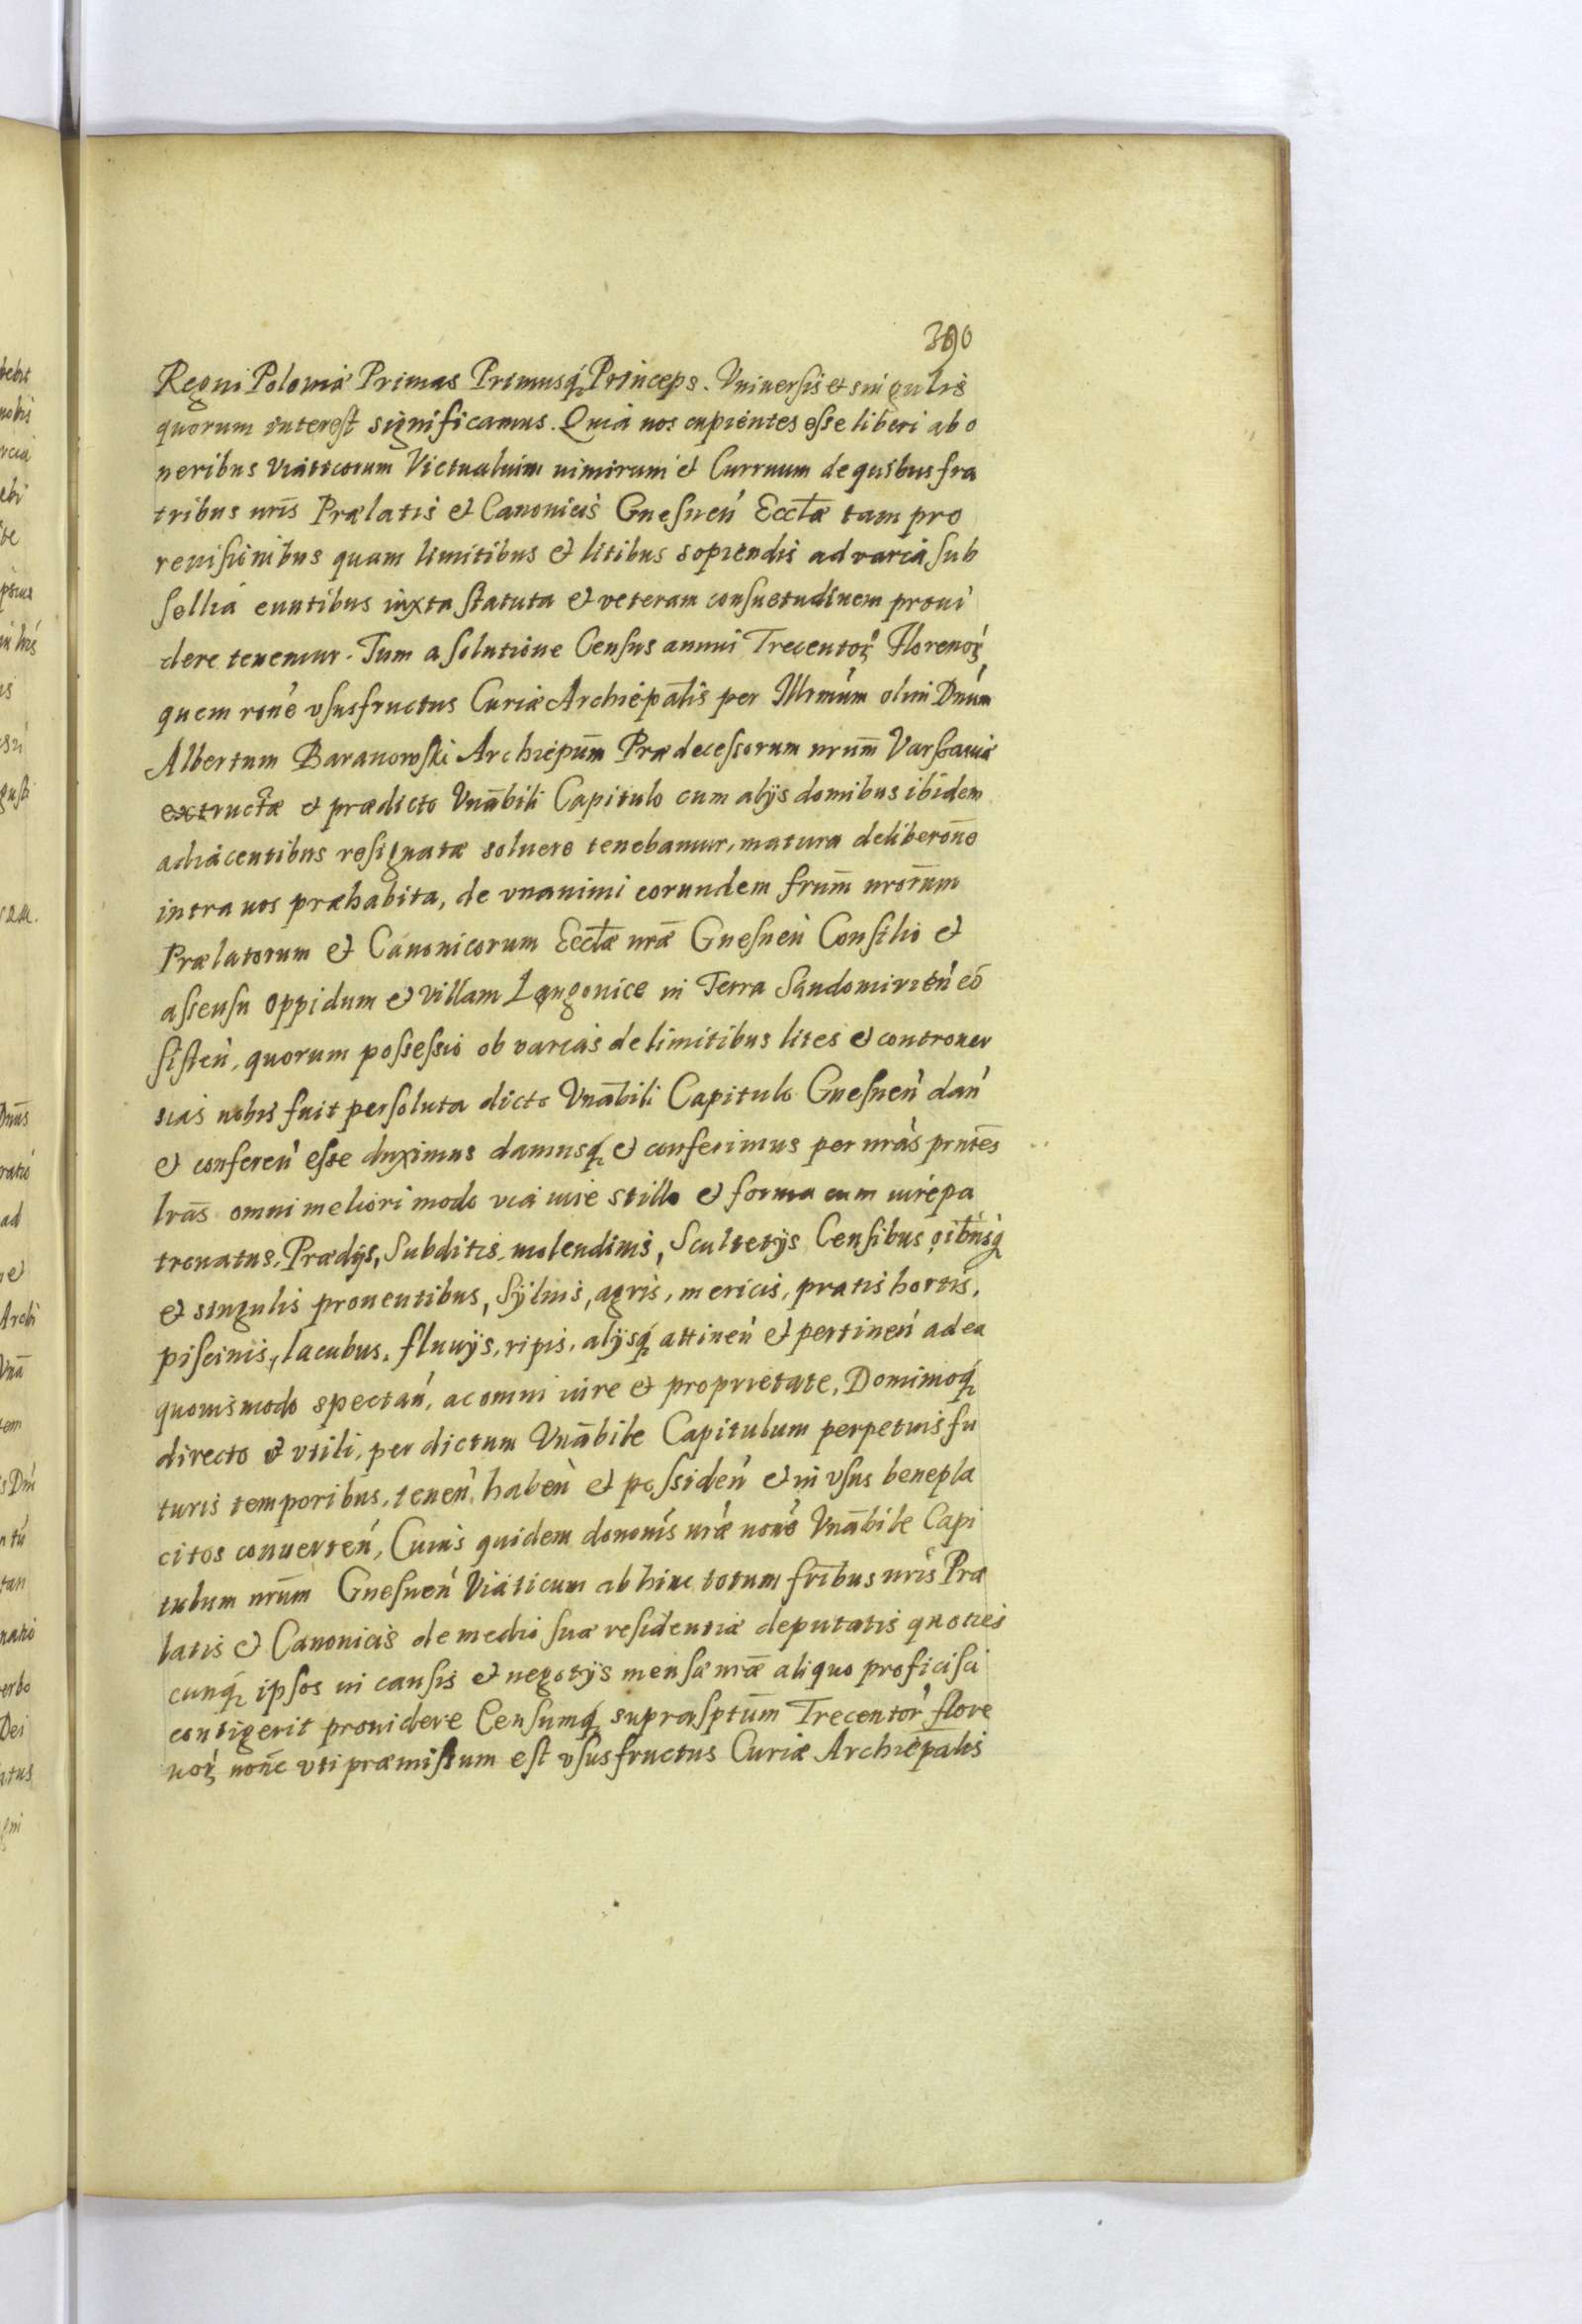 390
Regni Poloniæ Primas Primusq́ Princeps. Vniuersis et singulis
quorum interest significamus. Quia nos cupientes esse liberi ab o
neribus viaticorum Victualium nimirum et Curruum de quibus fra
tribus nrīs Prælatis et Canonicis Gnesneń Ecctæ tam pro
reuisionibus quam limitibus et litibus sopiendis ad varia sub
sellia euntibus iuxta statuta et veteram consuetudinem proui
dere tenemur. Tum a solutione Census annui Trecentoꝝ Florenoꝝ
quem rone vsusfructus Curiæ Archiepalis per Illrmum olim Dnum
Albertum Baranowski Archiepum̄ Prædecessorum nrum̄ Varsauiæ
extructæ et prædicto Vnābili Capitulo cum alijs domibus ibidem
adiacentibus resignatæ soluere tenebamur, matura deliberoñe
intra nos præhabita, de vnanimi eorundem frum̄ nrorum̄
Prælatorum et Canonicorum Ecctæ nrǣ Gnesneń Consilio et
assensu oppidum et villam Langonice in Terra Sandomirień eō
sisteń, quorum possessio ob varias de limitibus lites et controuer
sias nobis fuit persoluta dicto Vnābili Capitulo Gnesneń dań
et confereń esse duximus damusq́ et conferimus per nrās pntēs
lrās omni meliori modo via iure stillo et forma cum iurepa
tronatus, Prædijs, Subditis, molendinis, Scultetijs Censibus oībusq́
et singulis prouentibus, Syluis, agris, mericis, pratis hortis,
piscinis, lacubus, fluuijs, ripis, alijsq́ attineń et pertineń ad ea
quouismodo spectań, ac omni iure et proprietate, Dominioq́
directo et vtili, per dictum Vnābile Capitulum perpetuis fu
turis temporibus, teneń, habeń et possideń et in vsus benepla
citos conuerteń, Cuius quidem dononis nræ none Vnābile Capi
tulum nrum̄ Gnesneń Viaticum abhinc totum frībus nrīs Præ
latis et Canonicis de medio suæ residentiæ deputatis quoties
cunq́ ipsos in causis et negotijs mensæ nrǣ aliquo proficisci
contigerit prouidere Censumq́ suprasptum̄ Trecentor flore
noꝝ none vti præmissum est vsusfructus Curiæ Archiepalis